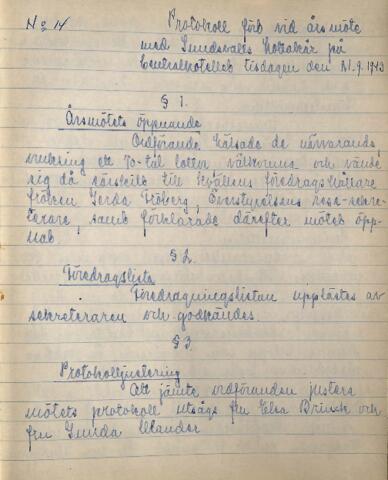 No 14
Protokoll förb vid årsmöte
med Sundsvalls Lottakår på
Centralhotellet tisdagen den 21.9.1943
§ 1.
Årsmötets öppnande
Ordförande hälsade de närvarande,
omkring ett 70-tal lottor välkomna och vände
sig då särskilt till kvällens föredragshållare
fröken Gerda Fröberg, Överstyrelsens rese-sekre-
terare, samt förklarade därefter mötet öpp-
nat.
§ 2.
Föredragslista
Föredragningslistan upplästes av
sekreteraren och godkändes.
§ 3.
Protokolljustering
Att jämte ordföranden justera
mötets protokoll utsågs fru Elsa Brinck och
fru Gunda Ulander